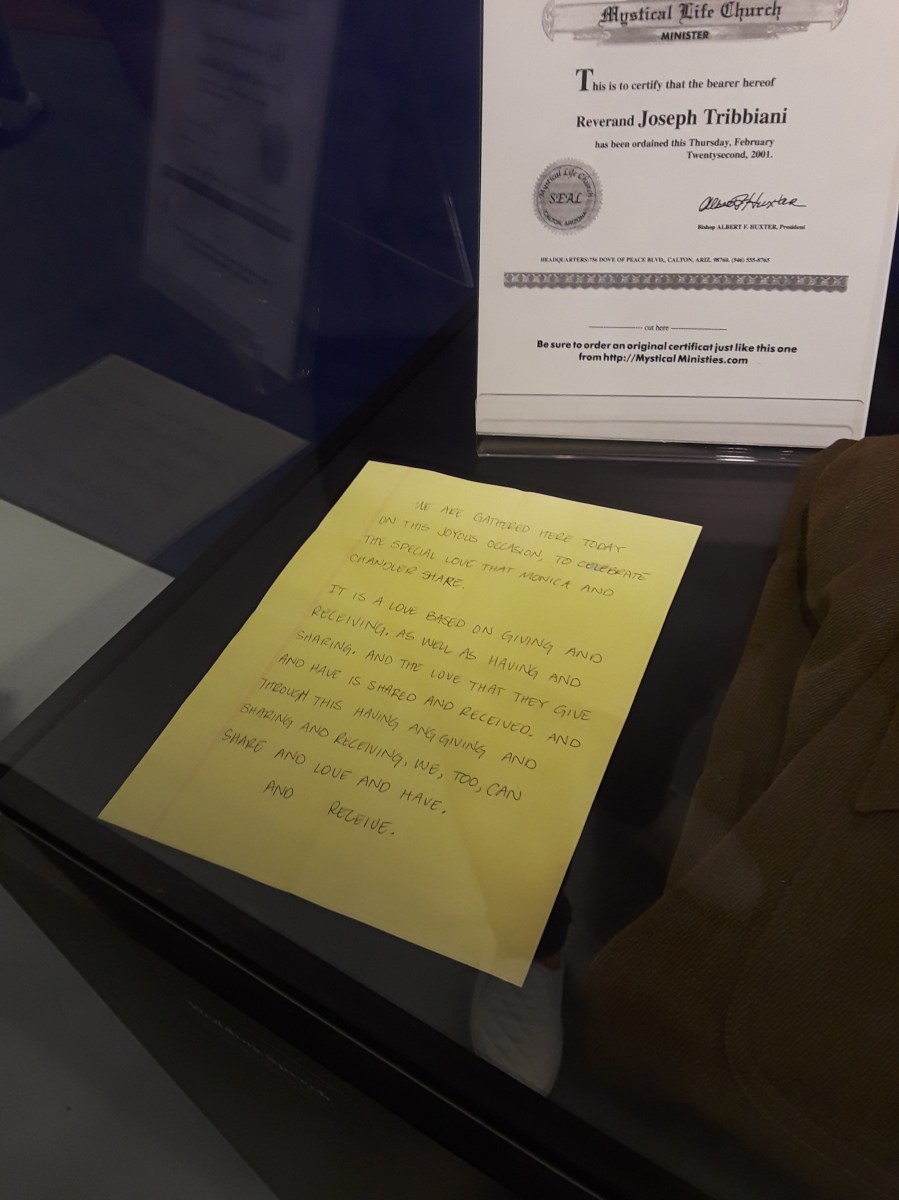 Mystical Life Church
MINISTER
This is to certify that the bearer hereof
Reverand Joseph Tribbiani
has been ordained this Thursday, February
Twentysecond, 2001.
Mystical Life Church
SEAL
CALTON, ARIZONA
Albert F Huxter
Bishop ALBERT F. HUXTER, President
HEADQUARTERS: 796 DOVE OF PEACE BLVD., CALTON, ARIZ. 98760. (546) 555-8763
cut here
Be sure to order an original certificat just like this one
from http://Mystical Ministies.com
WE ARE GATHERED HERE TODAY
ON THIS JOYOUS OCCASION, TO CELEBRATE
THE SPECIAL LOVE THAT MONICA AND
CHANDLER SHARE.
IT IS A LOVE BASED ON GIVING AND
RECEIVING. AS WELL AS HAVING AND
SHARING. AND THE LOVE THAT THEY GIVE
AND HAVE IS SHARED AND RECEIVED. AND
THROUGH THIS HAVING ANG GIVING AND
SHARING AND RECEIVING, WE, TOO, CAN
SHARE AND LOVE AND HAVE.
AND RECEIVE.